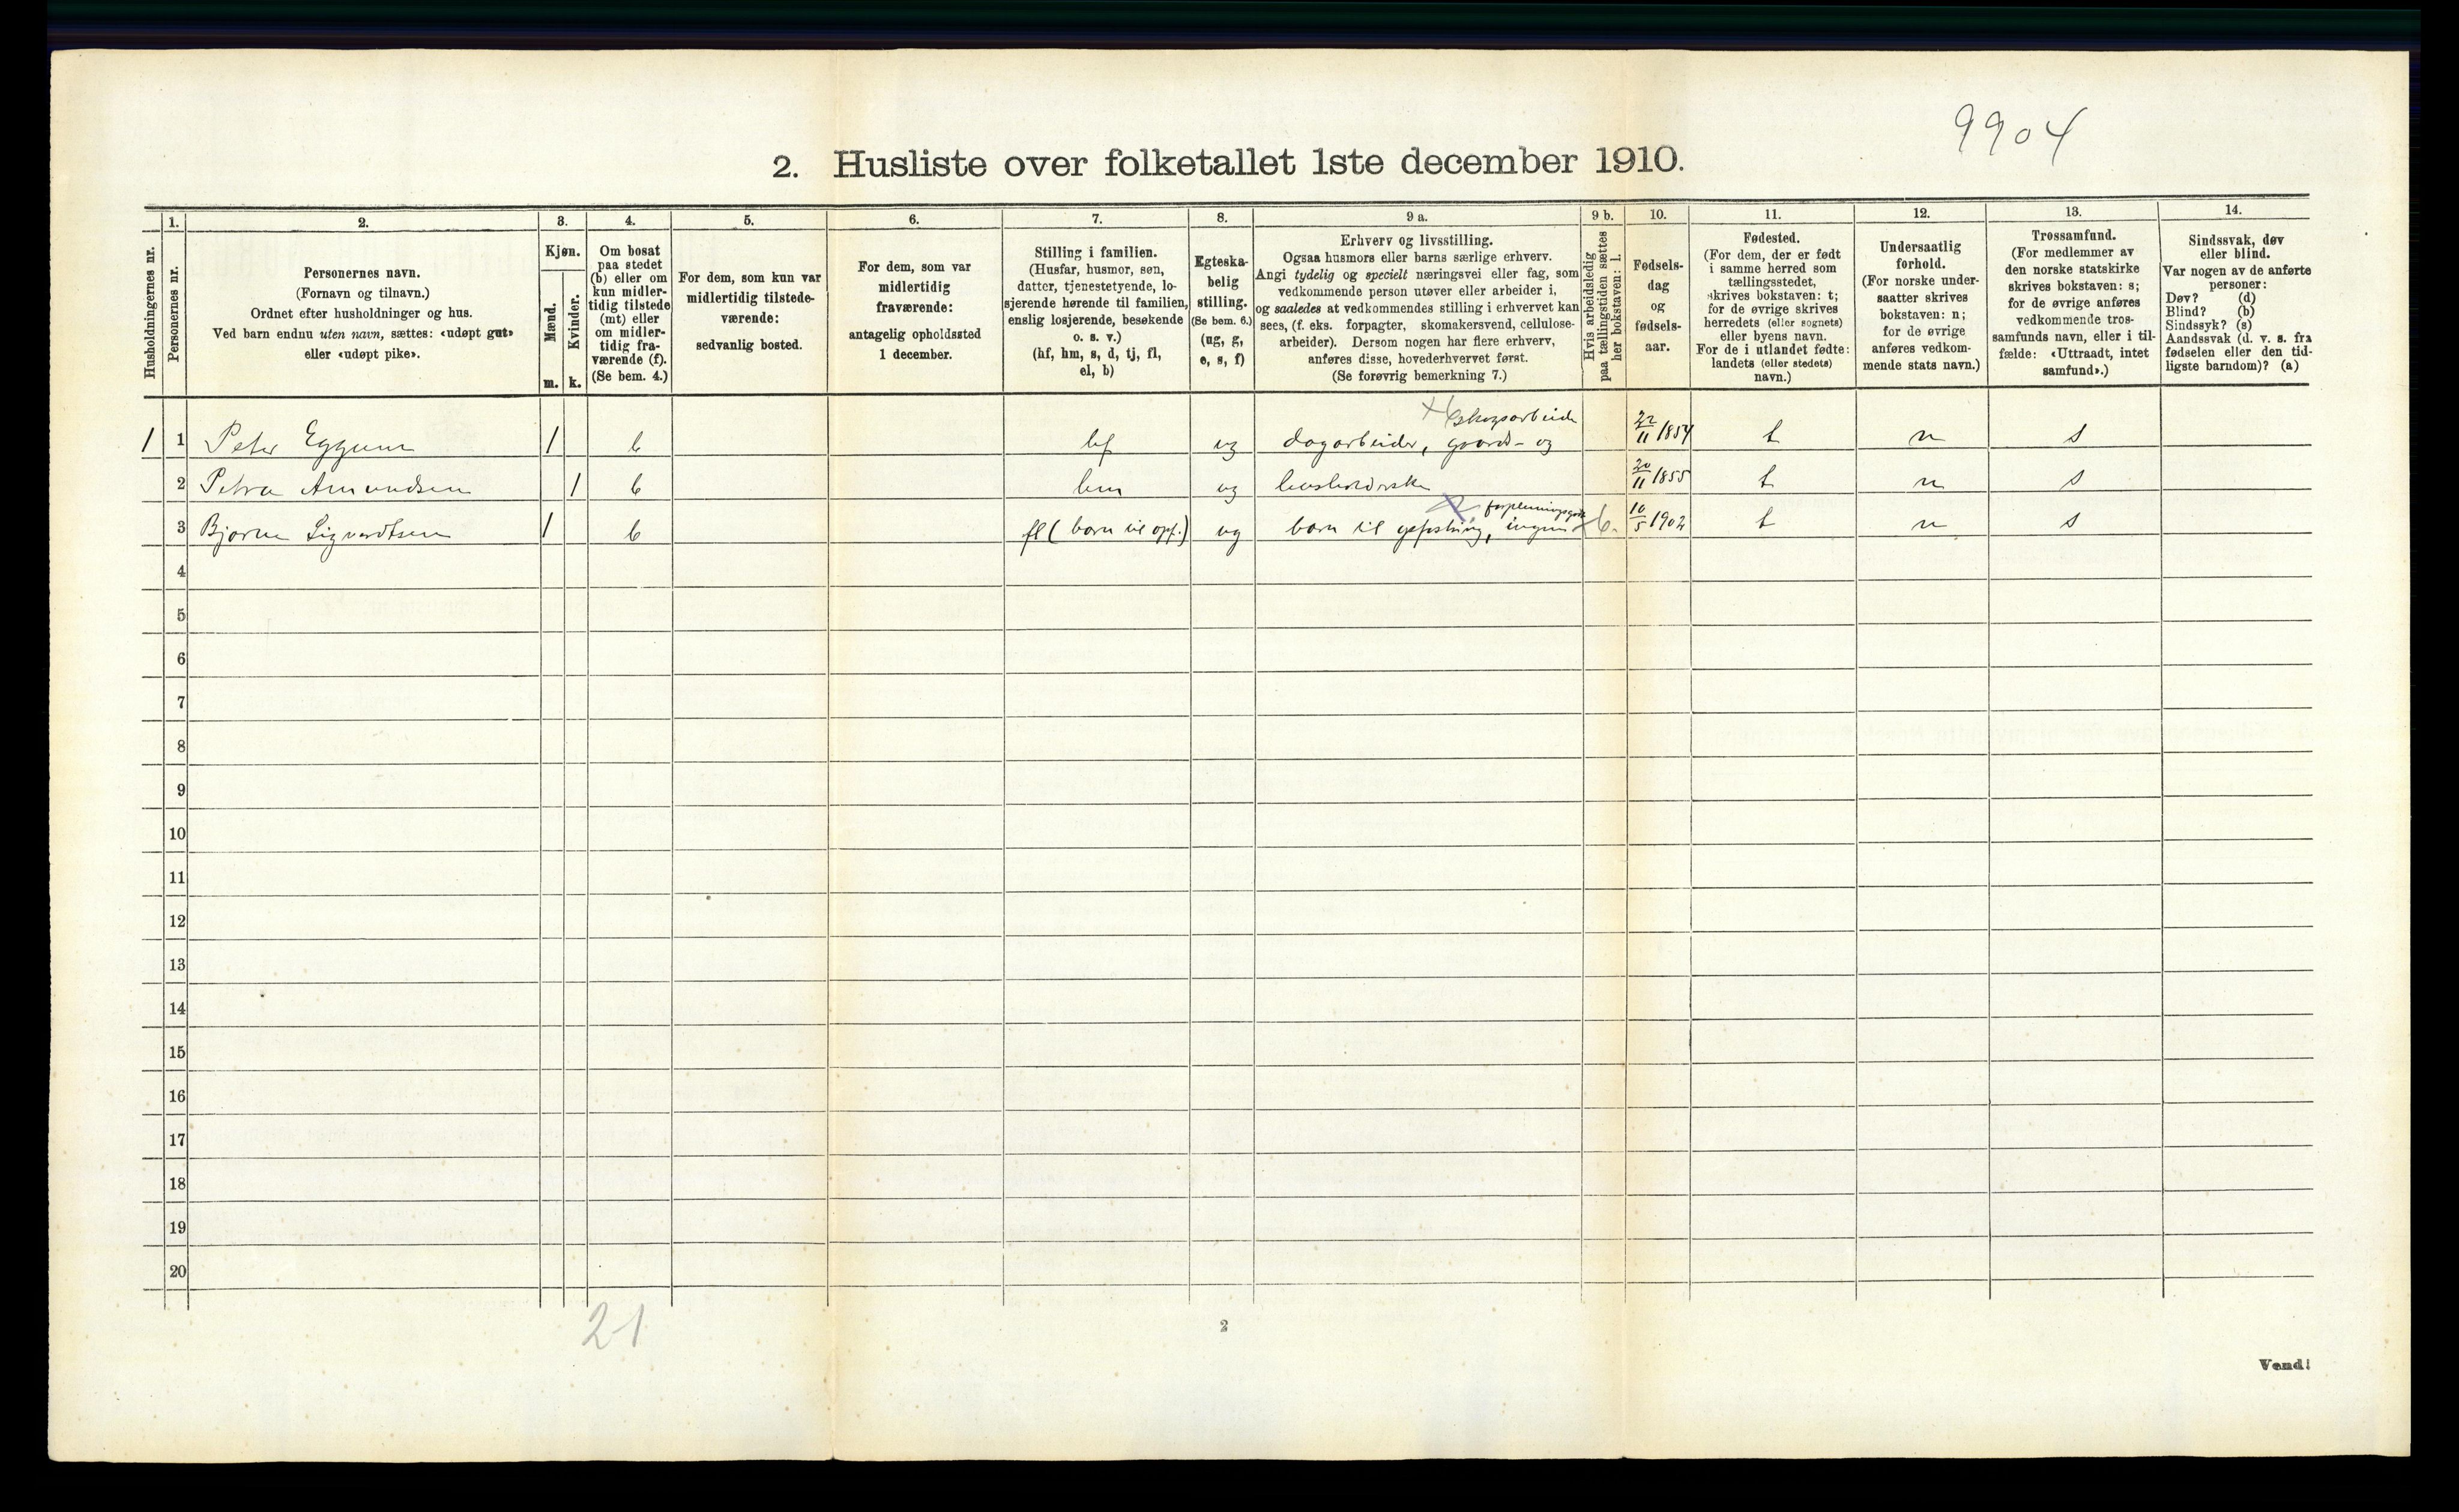 9904
2. Husliste over folketallet 1ste december 1910.
1. 2. 3. 4. 5. 6. 7. 8. 9 a. 9 b. 10. 11. 12. 13. 14.
Husholdningernes nr.
Personernes nr.
Personernes navn.
(Fornavn og tilnavn.)
Ordnet efter husholdninger og hus.
Ved barn endnu uten navn, sættes: «udøpt gut»
eller «udøpt pike».
Kjøn.
Mænd.
Kvinder.
m. k.
Om bosat
paa stedet
(b) eller om
kun midler-
tidig tilstede
(mt) eller
om midler-
tidig fra-
værende (f).
(Se bem. 4.)
For dem, som kun var
midlertidig tilstede-
værende:
sedvanlig bosted.
For dem, som var
midlertidig
fraværende:
antagelig opholdssted
1 december.
Stilling i familien.
(Husfar, husmor, søn,
datter, tjenestetyende, lo-
sjerende hørende til familien,
enslig losjerende, besøkende
o. s. v.)
(hf, hm, s, d, tj, fl,
el, b)
Egteska-
belig
stilling.
(Se bem. 6.)
(ug, g,
e, s, f)
Erhverv og livsstilling.
Ogsaa husmors eller barns særlige erhverv.
Angi tydelig og specielt næringsvei eller fag, som
vedkommende person utøver eller arbeider i,
og saaledes at vedkommendes stilling i erhvervet kan
sees, (f. eks. forpagter, skomakersvend, cellulose-
arbeider). Dersom nogen har flere erhverv,
anføres disse, hovederhvervet først.
(Se forøvrig bemerkning 7.)
Hvis arbeidsledig
paa tællingstiden sættes
her bokstaven: l.
Fødsels-
dag
og
fødsels-
aar.
Fødested.
(For dem, der er født
i samme herred som
tællingsstedet,
skrives bokstaven: t;
for de øvrige skrives
herredets (eller sognets)
eller byens navn.
For de i utlandet fødte:
landets (eller stedets)
navn.)
Undersaatlig
forhold.
(For norske under-
saatter skrives
bokstaven: n;
for de øvrige
anføres vedkom-
mende stats navn.)
Trossamfund.
(For medlemmer av
den norske statskirke
skrives bokstaven: s;
for de øvrige anføres
vedkommende tros-
samfunds navn, eller i til-
fælde: «Uttraadt, intet
samfund».)
Sindssvak, døv
eller blind.
Var nogen av de anførte
personer:
Døv? (d)
Blind? (b)
Sindssyk? (s)
Aandssvak (d. v. s. fra
fødselen eller den tid-
ligste barndom)? (a)
skogsarbeide
1 1 Peter Eggum 1 b hf ug dagarbeider, gaards- og 22/11 1854 t n s
2 Petra Amundsen 1 b hm ug husholderske 20/11 1855 t n s
forpleiningsgodt
3 Bjarne Sigvardtsen 1 b fl (barn til opf.) ug barn til opfostring, ingen 6. 10/5 1902 t n s
4
5
6
7
8
9
10
11
12
13
14
15
16
17
18
19
20
21
2
Vend!